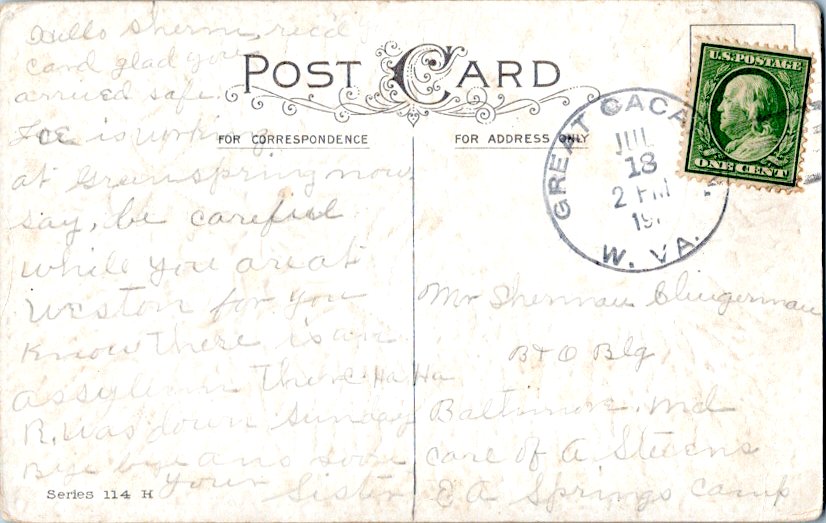 Hello Sherm, rec'd your
card glad you
arrived safe.
Joe is working
at Greenspring now
say, be careful
while you are at
Weston for you
know there is an
assylum there Ha Ha
R. was down Sunday
Bye bye ans soon
your Sister
Series 114 H
POST CARD
FOR CORRESPONDENCE
FOR ADDRESS ONLY
GREAT CACA
JUL
18
2 PM
191
W. VA.
U.S. POSTAGE
ONE CENT
Mr Sherman Clingerman
B & O Blg
Baltimore, Md
care of A Stevens
E A Springs camp